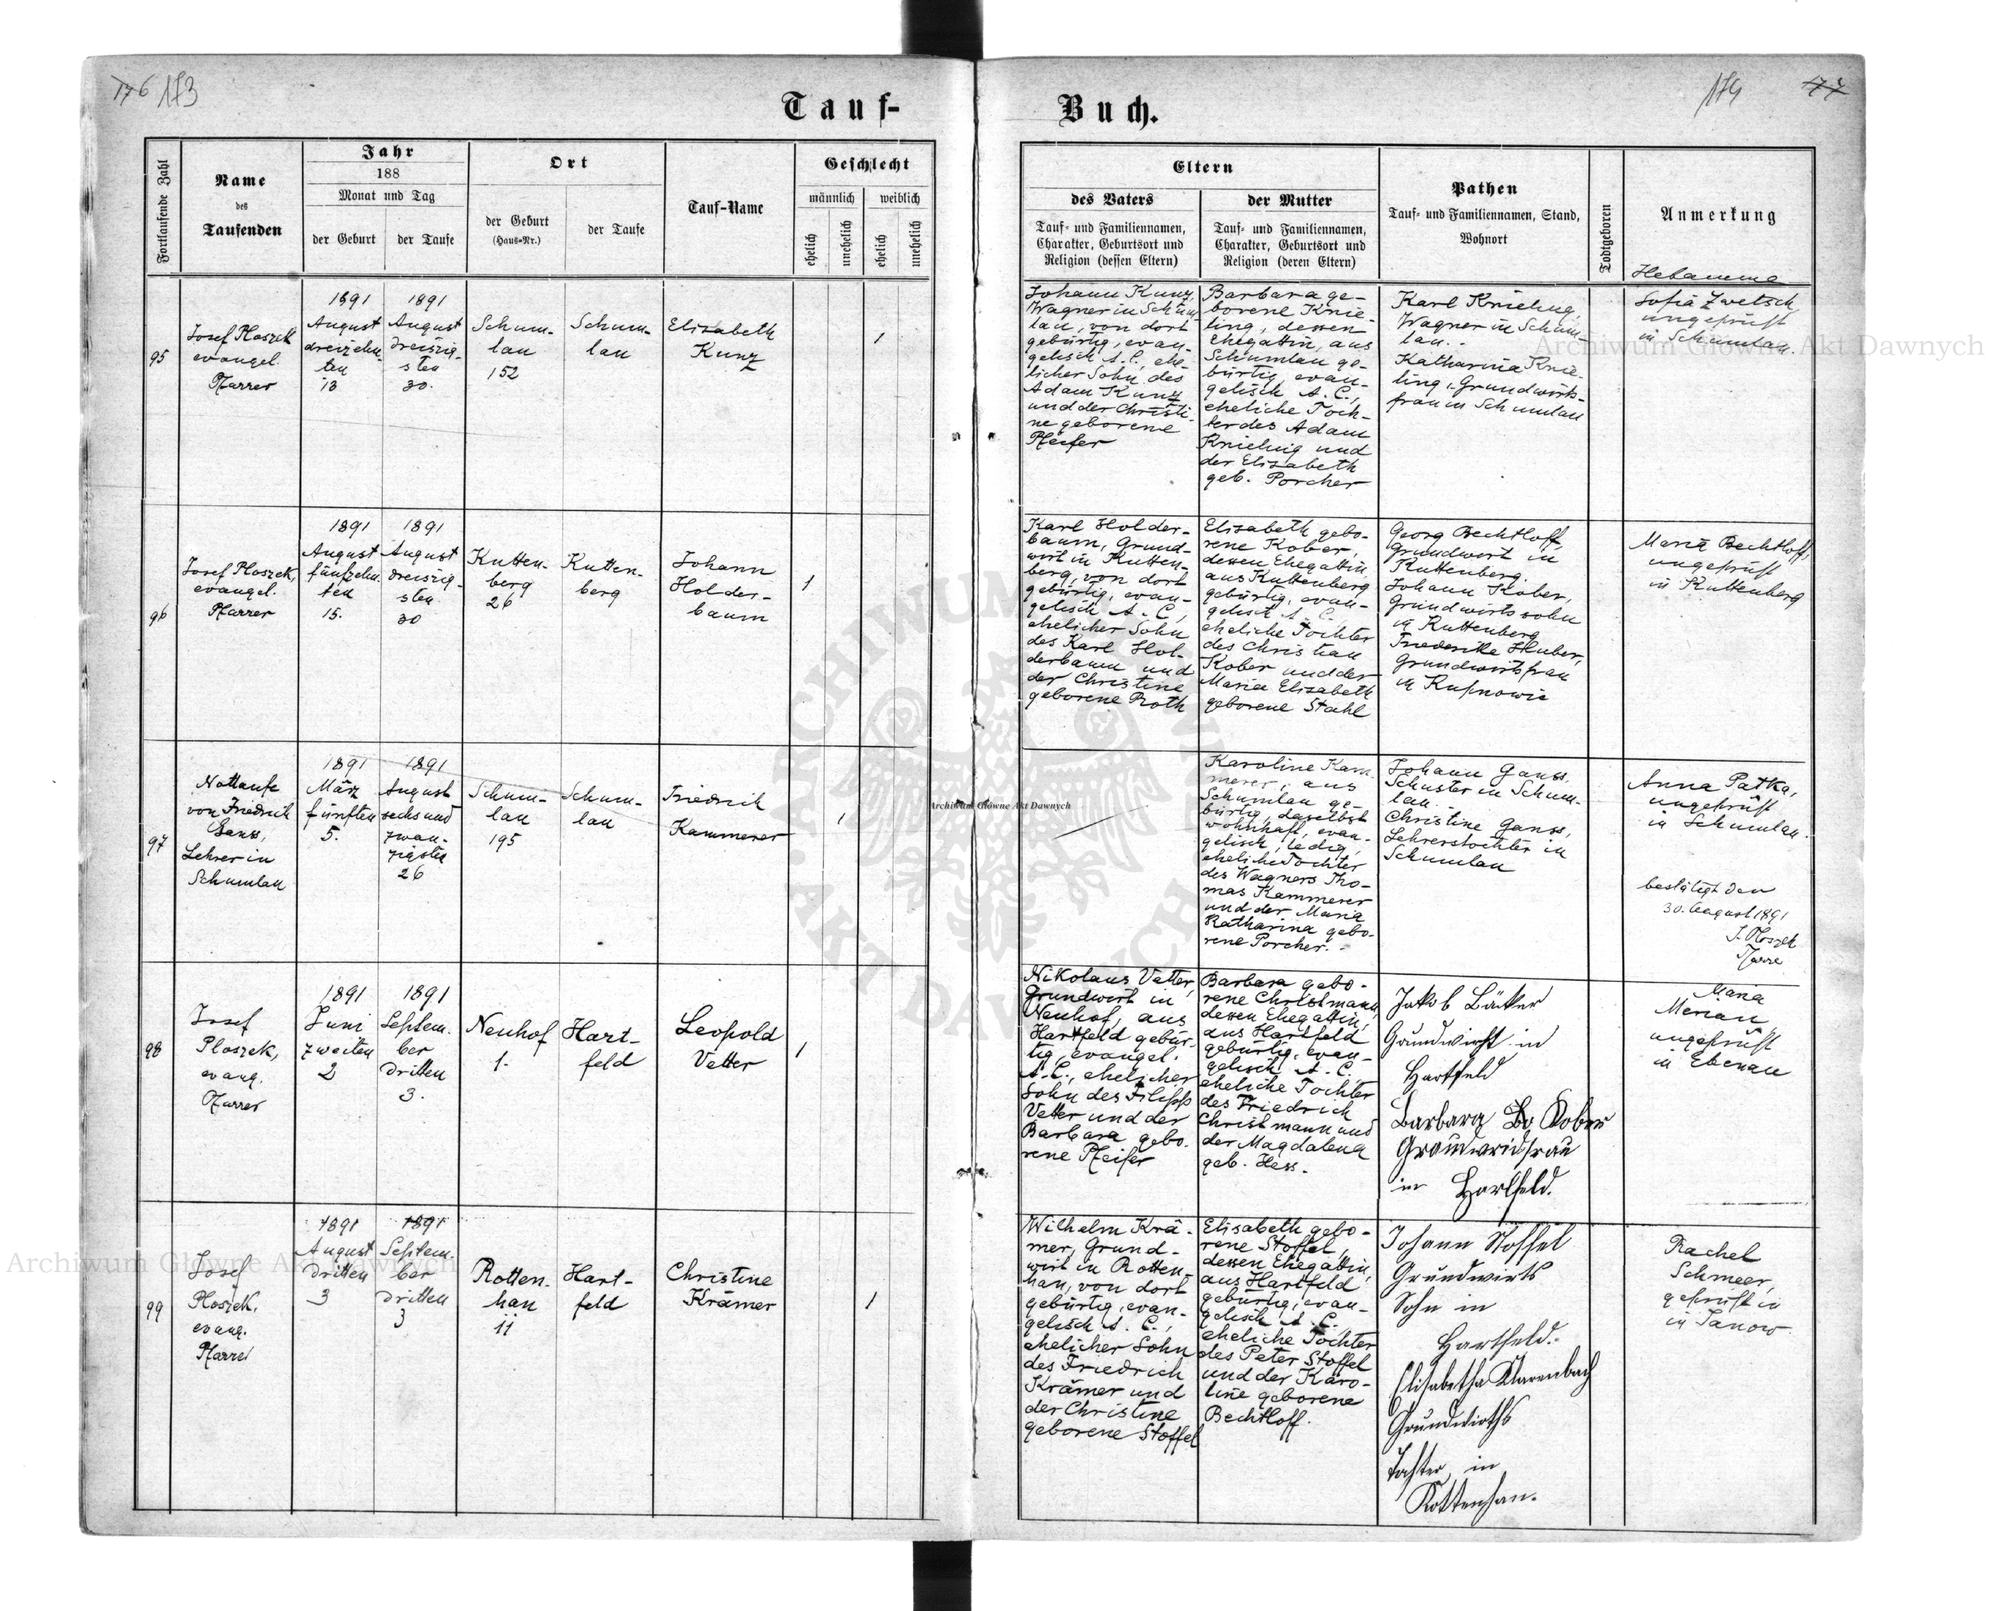 176 173
Tauf-
Buch.
174 177
Fortlaufende Zahl
Name
des
Taufenden
Jahr
188
Monat und Tag
der Geburt
der Taufe
Ort
der Geburt
(Haus-Nr.)
der Taufe
Tauf-Name
Geschlecht
männlich
weiblich
ehelich
unehelich
ehelich
unehelich
Eltern
des Vaters
Tauf- und Familiennamen,
Charakter, Geburtsort und
Religion (dessen Eltern)
der Mutter
Tauf- und Familiennamen,
Charakter, Geburtsort und
Religion (deren Eltern)
Pathen
Tauf- und Familiennamen, Stand,
Wohnort
Todtgeboren
Anmerkung
Hebamme
95
Josef Ploszek
evangel.
Pfarrer
1891
August
dreizehn-
ten
13
1891
August
dreiszig-
sten
30.
Schum-
lau
152
Schum-
lau
Elisabeth
Kunz
1
Johann Kunz,
Wagner in Schum
lau, von dort
gebürtig, evan-
gelisch A. C., ehe-
licher Sohn des
Adam Kunz
und der Christi-
ne geborene
Pfeifer
Barbara ge-
borene Knie-
ling, dessen
Ehegattin, aus
Schumlau ge-
bürtig, evan-
gelisch A. C.,
eheliche Toch-
ter des Adam
Knieling und
der Elisabeth
geb. Porcher
Karl Knieling,
Wagner in Schum
lau.-
Katharina Knie-
ling, Grundwirts-
frau in Schumlau
Sofia Zwetsch
ungeprüft
in Schumlau.
96
Josef Ploszek,
evangel.
Pfarrer
1891
August
fünfzehn-
ten
15.
1891
August
dreiszig-
sten
30
Kutten-
berg
26
Kutten-
berg
Johann
Holder-
baum
1
Karl Holder-
baum, Grund-
wirt in Kutten-
berg, von dort
gebürtig, evan-
gelisch A. C.,
ehelicher Sohn
des Karl Hol-
derbaum und
der Christine
geborene Roth
Elisabeth gebo-
rene Kober,
dessen Ehegattin
aus Kuttenberg
gebürtig, evan-
gelisch A. C.
eheliche Tochter
des Christian
Kober und der
Maria Elisabeth
geborene Stahl
Georg Bechtloff,
Grundwirt in
Kuttenberg.
Johann Kober,
Grundwirtssohn
in Kuttenberg
Friedericke Huber,
Grundwirtsfrau
in
Maria Bechtloff,
ungeprüft
in Kuttenberg
97
Nottaufe
von Friedrich
Ganss,
Lehrer in
Schumlau
1891
März
fünften
5.
1891
August
sechsund
zwan-
zigsten
26
Schum-
lau
195
Schum-
lau
Friedrich
Kammerer
1
Karoline Kam-
merer, aus
Schumlau ge-
bürtig, daselbst
wohnhaft, evan-
gelisch, ledig,
eheliche Tochter
des Wagners Tho-
mas Kammerer
und der Maria
Katharina gebo-
rene Porcher.-
Johann Ganss,
Schuster in Schum-
lau.-
Christine Ganss,
Lehrerstochter in
Schumlau
Anna Patka,
ungeprüft
in Schumlau.
bestätigt den
30. August 1891
J. Ploszek
Pfarre
98
Josef
Ploszek,
evang.
Pfarrer
1891
Juni
zweiten
2
1891
Septem-
ber
dritten
3.
Neuhof
1.
Hart-
feld
Leopold
Vetter
1
Nikolaus Vetter,
Grundwirt in
Neuhof, aus
Hartfeld gebür-
tig, evangel.
A. C., ehelicher
Sohn des Filipp
Vetter und der
Barbara gebo-
rene Pfeifer
Barbara gebo-
rene Christmann,
dessen Ehegattin,
aus Hartfeld
gebürtig, evan-
gelisch A. C.
eheliche Tochter
des Friedrich
Christmann und
der Magdalena
geb. Hess.-
Jakob Bäcker
Grundwirth in
Hartfeld
Barbara Kober
in Hartfeld.
Maria
Merian
ungeprüft
in Ebenau
99
Josef
Ploszek,
evang.
Pfarrer
1891
August
dritten
3
1891
Septem-
ber
dritten
3
Rotten-
han
11
Hart-
feld
Christine
Krämer
1
Wilhelm Krä-
mer, Grund-
wirt in Rotten-
han, von dort
gebürtig, evan-
gelisch A. C.,
ehelicher Sohn
des Friedrich
Krämer und
der Christine
geborene Stoffel
Elisabeth gebo-
rene Stoffel,
dessen Ehegattin,
aus Hartfeld
gebürtig, evan-
gelisch A. C.,
eheliche Tochter
des Peter Stoffel
und der Karo-
line geborene
Bechtloff.
Johann Stoffel
Grundwirts
Sohn in
Hartfeld.-
Elisabetha Klarenbach
Grundwirths
Tochter in
Rottenhan.
Rachel
Schmeer,
geprüft in
in Janow
Archiwum Główne Akt Dawnych
Archiwum Główne Akt Dawnych
Archiwum Główne Akt Dawnych
ARCHIWUM
AKT DAWNYCH